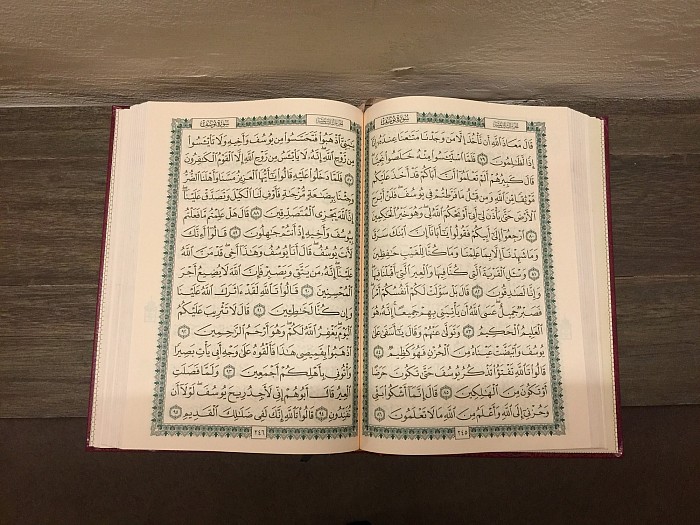 سورة يوسف
قال معاذ الله أن نأخذ إلا من وجدنا متاعنا عنده إنا
إذا لظالمون ٧٩ فلما استيئسوا منه خلصوا نجيا
قال كبيرهم ألم تعلموا أن أباكم قد أخذ عليكم
موثقا من الله ومن قبل ما فرطتم في يوسف فلن أبرح
الأرض حتى يأذن لي أبي أو يحكم الله لي وهو خير الحاكمين
٨٠ ارجعوا إلى أبيكم فقولوا يا أبانا إن ابنك سرق
وما شهدنا إلا بما علمنا وما كنا للغيب حافظين
٨١ وسئل القرية التي كنا فيها والعير التي أقبلنا فيها
وإنا لصادقون ٨٢ قال بل سولت لكم أنفسكم أمرا
فصبر جميل عسى الله أن يأتيني بهم جميعا إنه هو
العليم الحكيم ٨٣ وتولى عنهم وقال يا أسفى على
يوسف وابيضت عيناه من الحزن فهو كظيم ٨٤
قالوا تالله تفتؤا تذكر يوسف حتى تكون حرضا
أو تكون من الهالكين ٨٥ قال إنما أشكوا بثي
وحزني إلى الله وأعلم من الله ما لا تعلمون ٨٦
٢٤٥
سورة يوسف
يا بني اذهبوا فتحسسوا من يوسف وأخيه ولا تايئسوا
من روح الله إنه لا يايئس من روح الله إلا القوم الكافرون
٨٧ فلما دخلوا عليه قالوا يا أيها العزيز مسنا وأهلنا الضر
وجئنا ببضاعة مزجاة فأوف لنا الكيل وتصدق علينا
إن الله يجزي المتصدقين ٨٨ قال هل علمتم ما فعلتم
بيوسف وأخيه إذ أنتم جاهلون ٨٩ قالوا أءنك
لأنت يوسف قال أنا يوسف وهذا أخي قد من الله
علينا إنه من يتق ويصبر فإن الله لا يضيع أجر
المحسنين ٩٠ قالوا تالله لقد ءاثرك الله علينا
وإن كنا لخاطئين ٩١ قال لا تثريب عليكم
اليوم يغفر الله لكم وهو أرحم الراحمين ٩٢
اذهبوا بقميصي هذا فألقوه على وجه أبي يأت بصيرا
وأتوني بأهلكم أجمعين ٩٣ ولما فصلت
العير قال أبوهم إني لأجد ريح يوسف لولا أن
تفندون ٩٤ قالوا تالله إنك لفي ضلالك القديم ٩٥
٢٤٦